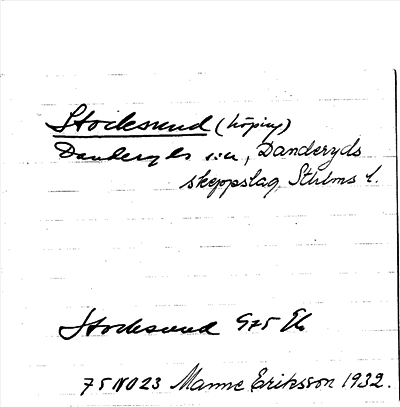 Stocksund (köping)
Danderyds sn, Danderyds
skeppslag, Sthlms l.
Stocksund 975 Eb
75 NO 23 Manne Eriksson 1932.